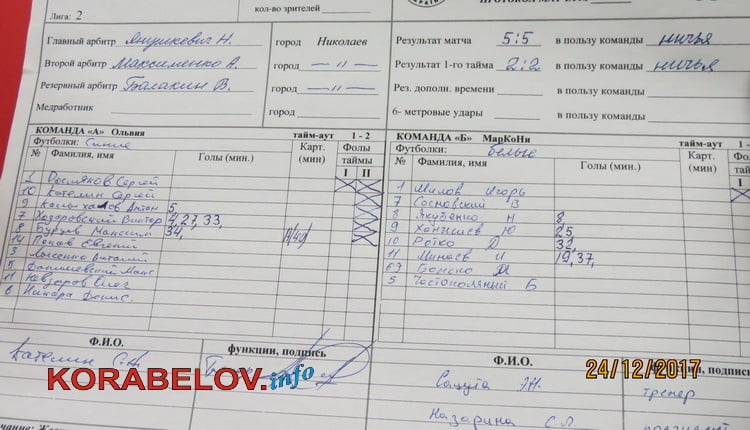 кол-во зрителей
Лига: 2
Главный арбитр Янушкевич Н. город Николаев
Второй арбитр Максименко А. город — 11 —
Резервный арбитр Балакин В. город — 11 —
Медработник город
Результат матча 5:5 в пользу команды ничья
Результат 1-го тайма 2:2 в пользу команды ничья
Рез. дополн. времени в пользу команды
6- метровые удары в пользу команды
КОМАНДА «А» Ольвия тайм-аут 1 - 2
Футболки: Синие Карт. (мин) Фолы таймы
№ Фамилия, имя Голы (мин.) I II
1 Сергей
10 Кателин Сергей
9 Антон 5,
7 Виктор 4, 27, 33,
8 Бурцев Максим 34,
14 Попов Евгений
3 Лысенко Виталий
5 Данишевский Макс
11 Олег
6 Денис.
КОМАНДА «Б» МарКоНи тайм-аут 1
Футболки: белые Карт. (мин) Фолы
№ Фамилия, имя Голы (мин.) I
1 Милов Игорь
7 Сосновский В
8 Якубенко Н 8,
9 Ю 25,
10 Ройко Д 32,
11 Минаев И 19, 37,
69 М
5 Чистополяный Б
Ф.И.О. функции, подпись
Кателин С.А.
Ф.И.О. функции, подпись
Сацута Э.Н. тренер
Назарина С.Л
KORABELOV.info
24/12/2017